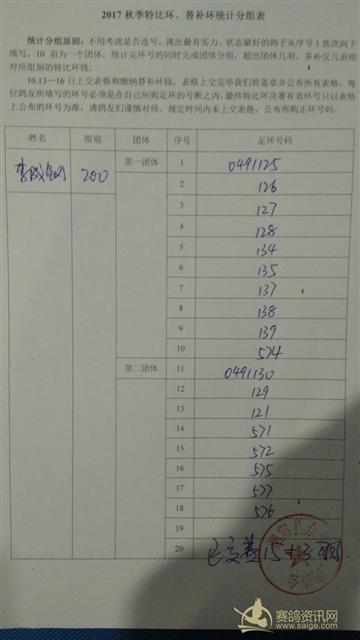 2017 秋季特比环、替补环统计分组表
统计分组原则：不用考虑是否连号，挑出最有实力、状态最好的鸽子从序号 1 依次向下
填写，10 羽为一个团体。统计完环号的同时完成团体分组，超出团体几羽，多补交几羽相
对应组别的特比环钱。
10.13—16 日上交表格和缴纳替补环钱。表格上交完毕我们将盖章并公布所有表格。每
位鸽友所填写的环号必须是在自己所购足环的号断之内，最终特比环决赛有效环号只以表格
上公布的环号为准，请鸽友们谨慎对待。规定时间内未上交表格，公布所购正环号码。
姓名 组别 团体 序号 足环号码
200 第一团体 1 0491125
2 126
3 127
4 128
5 134
6 135
7 137
8 138
9 139
10 574
第二团体 11 0491130
12 129
13 121
14 571
15 572
16 575
17 577
18 576
19
20
赛鸽资讯网
www.saige.com